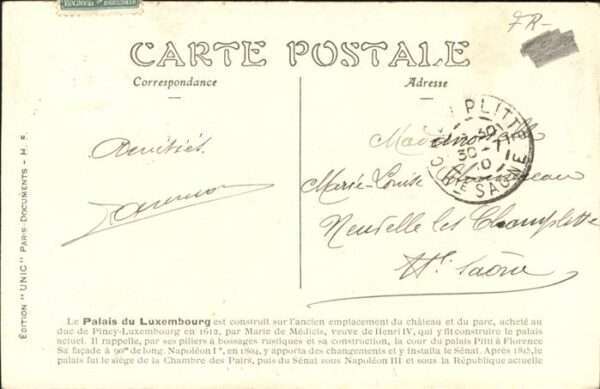 FR-
CARTE POSTALE
Correspondance
Adresse
PLITTE
30
30 -11
10
HTE SAONE
Amitiés.
Mademoiselle
Marie-Louise
Neuvelle les Champlitte
Hte Saône
ÉDITION "UNIC" PARIS-DOCUMENTS - H. R.
Le Palais du Luxembourg est construit sur l'ancien emplacement du château et du parc, acheté au
duc de Piney-Luxembourg en 1612, par Marie de Médicis, veuve de Henri IV, qui y fit construire le palais
actuel. Il rappelle, par ses piliers à bossages rustiques et sa construction, la cour du palais Pitti à Florence
Sa façade à 90m de long. Napoléon Ier, en 1804, y apporta des changements et y installa le Sénat. Après 1815, le
palais fut le siège de la Chambre des Pairs, puis du Sénat sous Napoléon III et sous la République actuelle